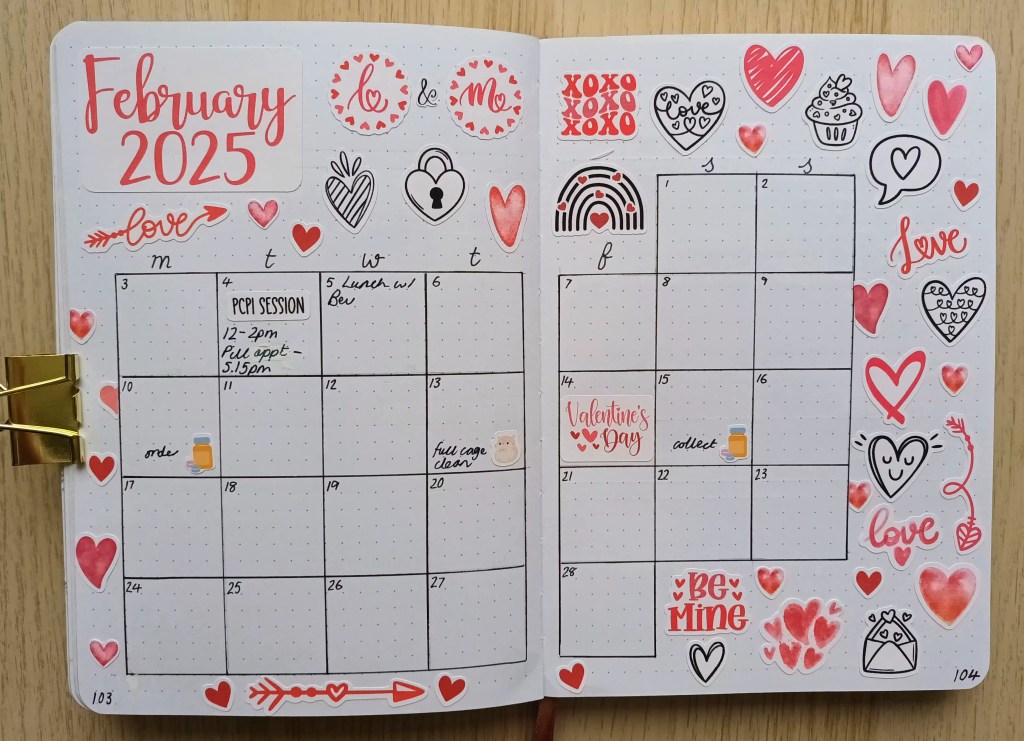 February
2025
b & m
love
m t w t
3 4 5 Lunch w/ 6
Bev
PCPI SESSION
12-2pm
Pill appt -
5.15pm
10 11 12 13
order
full cage
clean
17 18 19 20
24 25 26 27
103
XOXO
XOXO
XOXO
love
s s
1 2
Love
f
7 8 9
14 15 16
Valentine's
Day
collect
21 22 23
love
28
BE
MINE
104